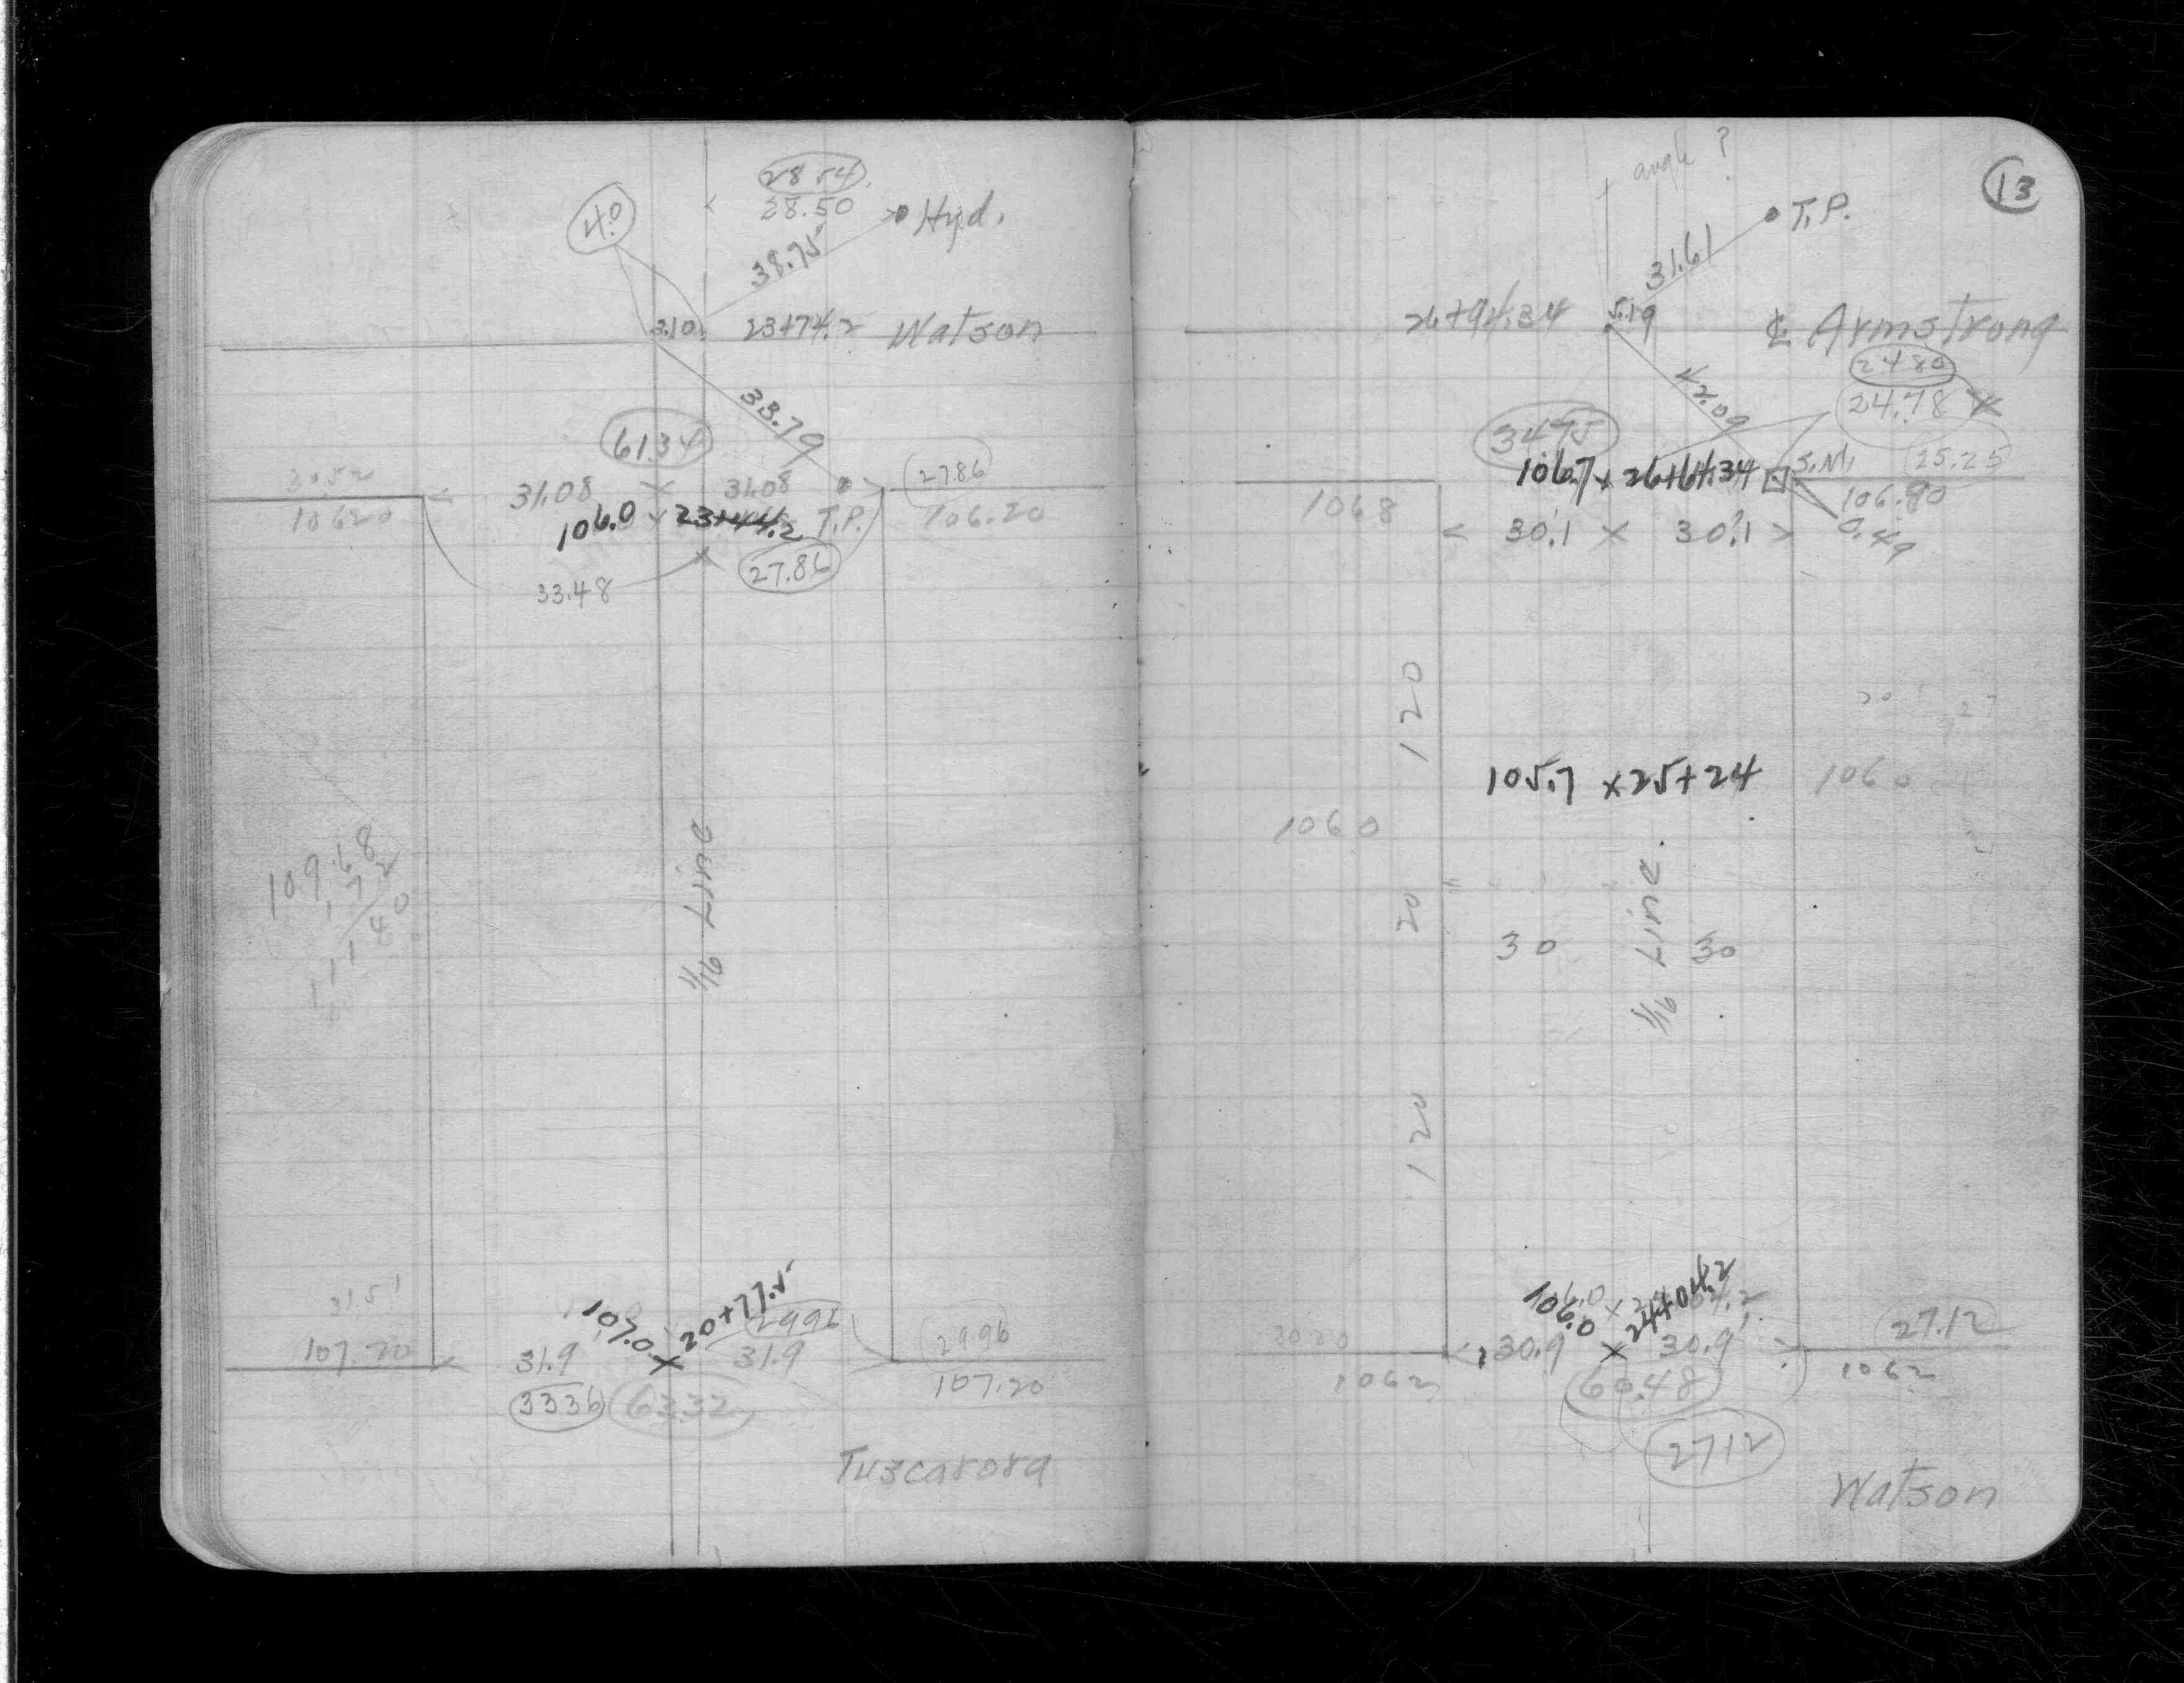 28.54
28.50
4.0
Hyd.
38.75
3.10
23+74.2 Watson
33.79
61.34
27.86
31.08 x 31.08
10620
106.0 x 23+44.2 T.P.
106.20
27.86
33.48
1/16 Line
109.68
1.72
111.40
31.51
107.0 x 20+77.5
29.96
29.96
107.20
31.9
31.9
107.20
3336
63.32
Tuscarora
angle ?
13
T.P.
31.61
26+94.34
5.19
℄ Armstrong
2480
42.09
24.78 x
3475
S.M.
25.25
106.7 x 26+64.34
1068
106.90
< 30.1 x 30.1 >
0.49
120
105.7 x 25+24
1060
1060
20
1/16 Line.
30
30
120
106.0 x 24+04.2
27.12
30.9 x 30.9
1062
1062
60.48
2712
Watson